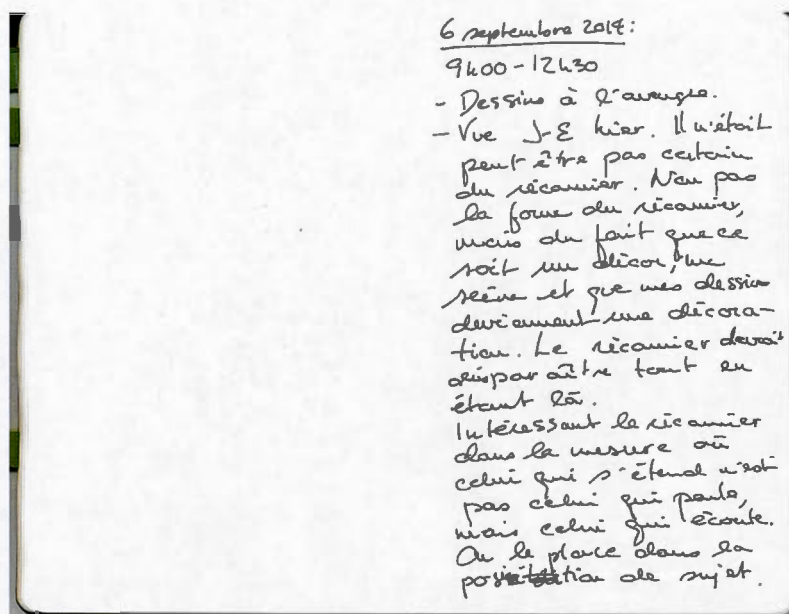 6 septembre 2014:
9h00-12h30
- Dessins à l'aveugle.
- Vue J-E hier. Il n'était
peut être pas certain
du récamier. Non pas
la forme du récamier,
mais du fait que ce
soit un décor, une
scène et que mes dessins
deviennent une décora-
tion. Le récamier devrait
disparaître tout en
étant là.
Intéressant le récamier
dans la mesure où
celui qui s'étend n'est
pas celui qui parle,
mais celui qui écoute.
On le place dans la
position de sujet.